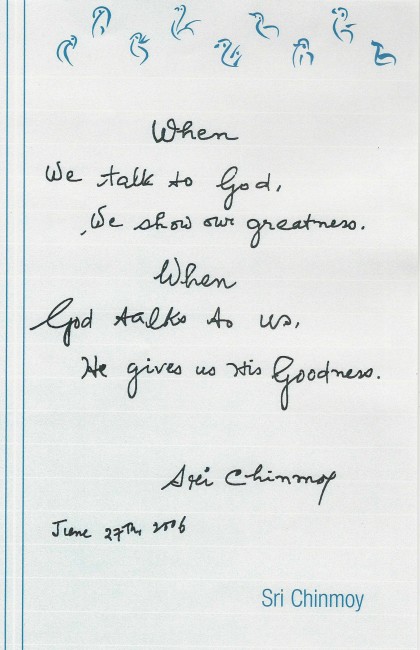 When
We talk to God,
We show our greatness.
When
God talks to us,
He gives us His Goodness.
Sri Chinmoy
June 27th, 2006
Sri Chinmoy